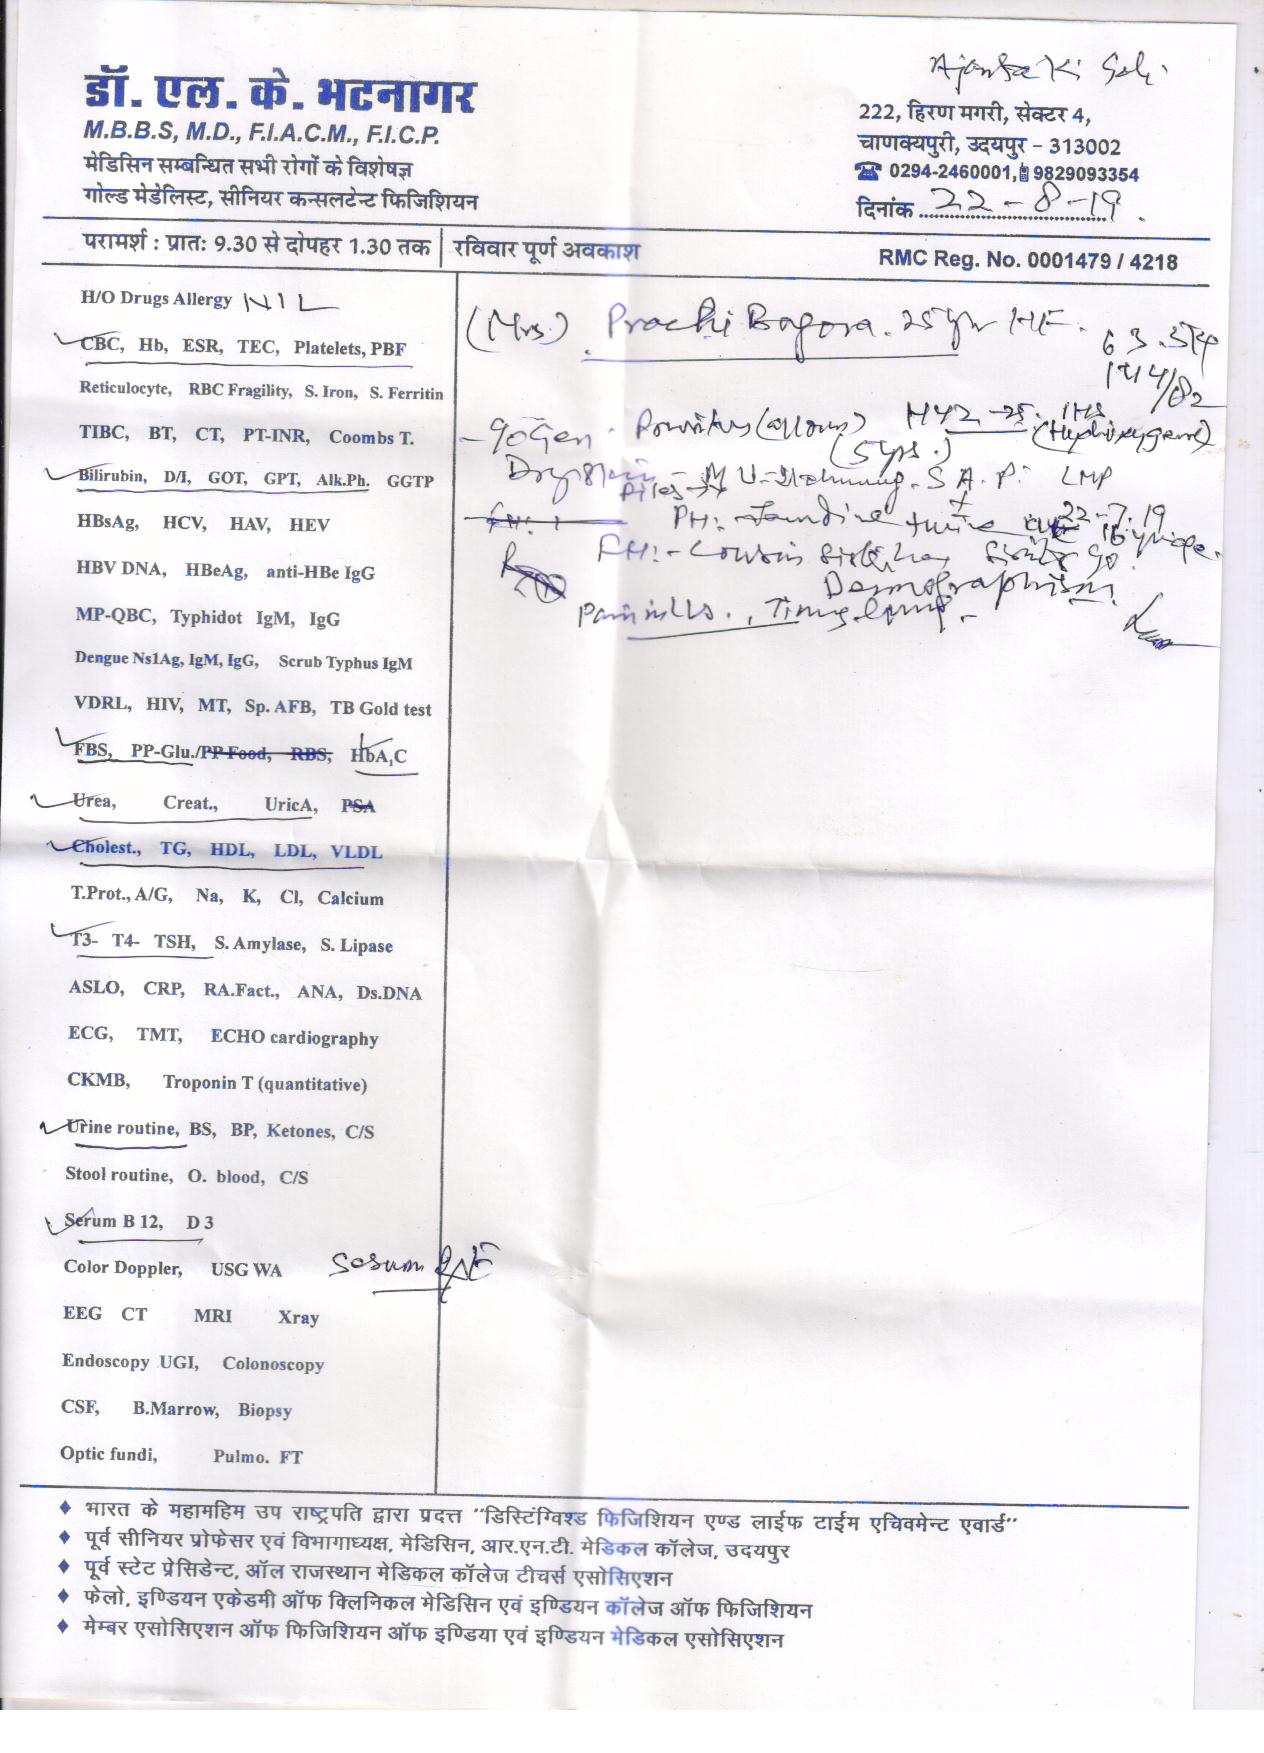 Ajanta Ki Gali
डॉ. एल. के. भटनागर
M.B.B.S, M.D., F.I.A.C.M., F.I.C.P.
मेडिसिन सम्बन्धित सभी रोगों के विशेषज्ञ
गोल्ड मेडेलिस्ट, सीनियर कन्सलटेन्ट फिजिशियन
222, हिरण मगरी, सेक्टर 4,
चाणक्यपुरी, उदयपुर – 313002
0294-2460001, 9829093354
दिनांक 22-8-19
परामर्श : प्रातः 9.30 से दोपहर 1.30 तक | रविवार पूर्ण अवकाश
RMC Reg. No. 0001479 / 4218
H/O Drugs Allergy NIL
CBC, Hb, ESR, TEC, Platelets, PBF
Reticulocyte, RBC Fragility, S. Iron, S. Ferritin
TIBC, BT, CT, PT-INR, Coombs T.
Bilirubin, D/I, GOT, GPT, Alk.Ph. GGTP
HBsAg, HCV, HAV, HEV
HBV DNA, HBeAg, anti-HBe IgG
MP-QBC, Typhidot IgM, IgG
Dengue Ns1Ag, IgM, IgG, Scrub Typhus IgM
VDRL, HIV, MT, Sp. AFB, TB Gold test
FBS, PP-Glu./PP Food, RBS, HbA1C
Urea, Creat., UricA, PSA
Cholest., TG, HDL, LDL, VLDL
T.Prot., A/G, Na, K, Cl, Calcium
T3- T4- TSH, S. Amylase, S. Lipase
ASLO, CRP, RA.Fact., ANA, Ds.DNA
ECG, TMT, ECHO cardiography
CKMB, Troponin T (quantitative)
Urine routine, BS, BP, Ketones, C/S
Stool routine, O. blood, C/S
Serum B 12, D 3
Color Doppler, USG WA
Serum IgE
EEG CT MRI Xray
Endoscopy UGI, Colonoscopy
CSF, B.Marrow, Biopsy
Optic fundi, Pulmo. FT
(Mrs.) Prachi Bagora. 25 yr HF.
63.5
144/82
- Gen. Pruritus (5 yrs.)
Dry Skin
Piles
LMP
22-7-19
PH:- Jaundice twice
FH:- Cousin Sister has Similar
Dermographism
भारत के महामहिम उप राष्ट्रपति द्वारा प्रदत्त "डिस्टिंग्विश्ड फिजिशियन एण्ड लाईफ टाईम एचिवमेन्ट एवार्ड"
पूर्व सीनियर प्रोफेसर एवं विभागाध्यक्ष, मेडिसिन, आर.एन.टी. मेडिकल कॉलेज, उदयपुर
पूर्व स्टेट प्रेसिडेन्ट, ऑल राजस्थान मेडिकल कॉलेज टीचर्स एसोसिएशन
फेलो, इण्डियन एकेडमी ऑफ क्लिनिकल मेडिसिन एवं इण्डियन कॉलेज ऑफ फिजिशियन
मेम्बर एसोसिएशन ऑफ फिजिशियन ऑफ इण्डिया एवं इण्डियन मेडिकल एसोसिएशन